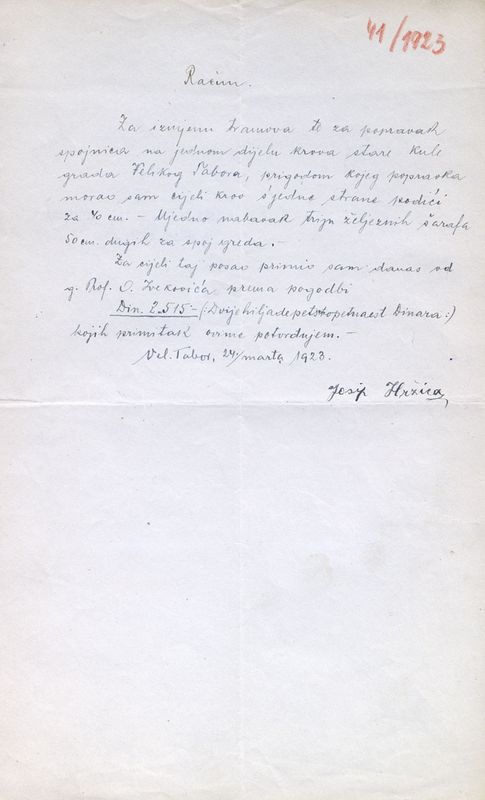 41/1923
Račun.
Za izmjenu tramova te za popravak
spojnica na jednom dijelu krova stare kule
grada Velikog Tabora, prigodom kojeg popravka
morao sam cijeli krov s'jedne strane podići
za 40 cm. – Ujedno nabavak triju željeznih šarafa
50 cm. dugih za spoj greda. –
Za cijeli taj posao primio sam danas od
g. Prof. O. Ivekovića prema pogodbi
Din. 2.515·– (:Dvijehiljadepetstopetnaest Dinara:)
kojih primitak ovime potvrdjujem. –
Vel. Tabor, 24/marta 1923.
Josip Hržica